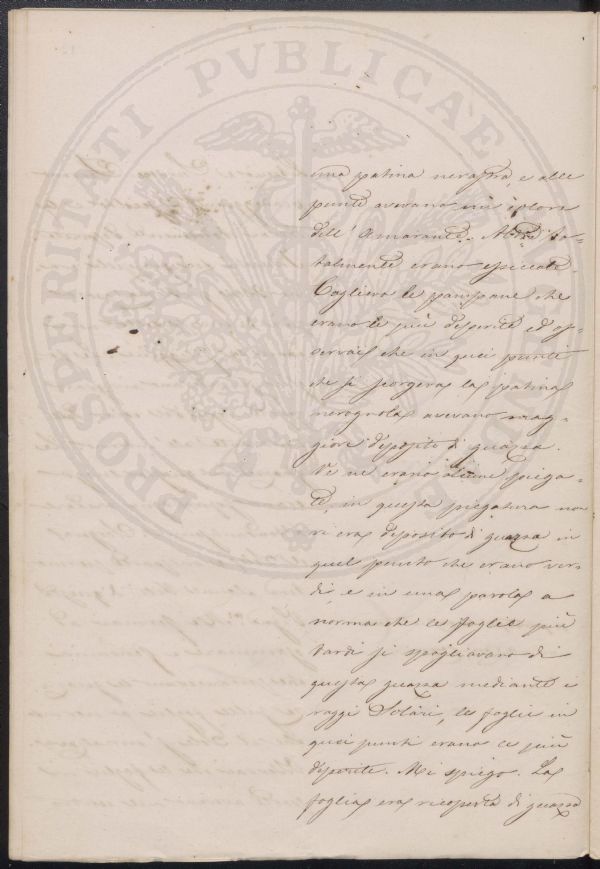 PROSPERITATI PVBLICAE
una patina nerastra, e alle
punte avevano un colore
dell'Amarante. Altre to-
talmente erano essiccate.
Coglievo le pampane che
erano le più deperite ed os-
servai che in quei punti
che si scorgeva la patina
nerognola avevano mag-
giore deposito di guazza.
Ve ne erano alcune piega-
te, in questa piegatura non
vi era deposito di guazza in
quel punto che erano ver-
di, e in una parola a
norma che le foglie più
tardi si spogliavano di
questa guazza mediante i
raggi Solari, le foglie in
quei punti erano le più
deperite. Mi spiego. La
foglia era ricoperta di guazza